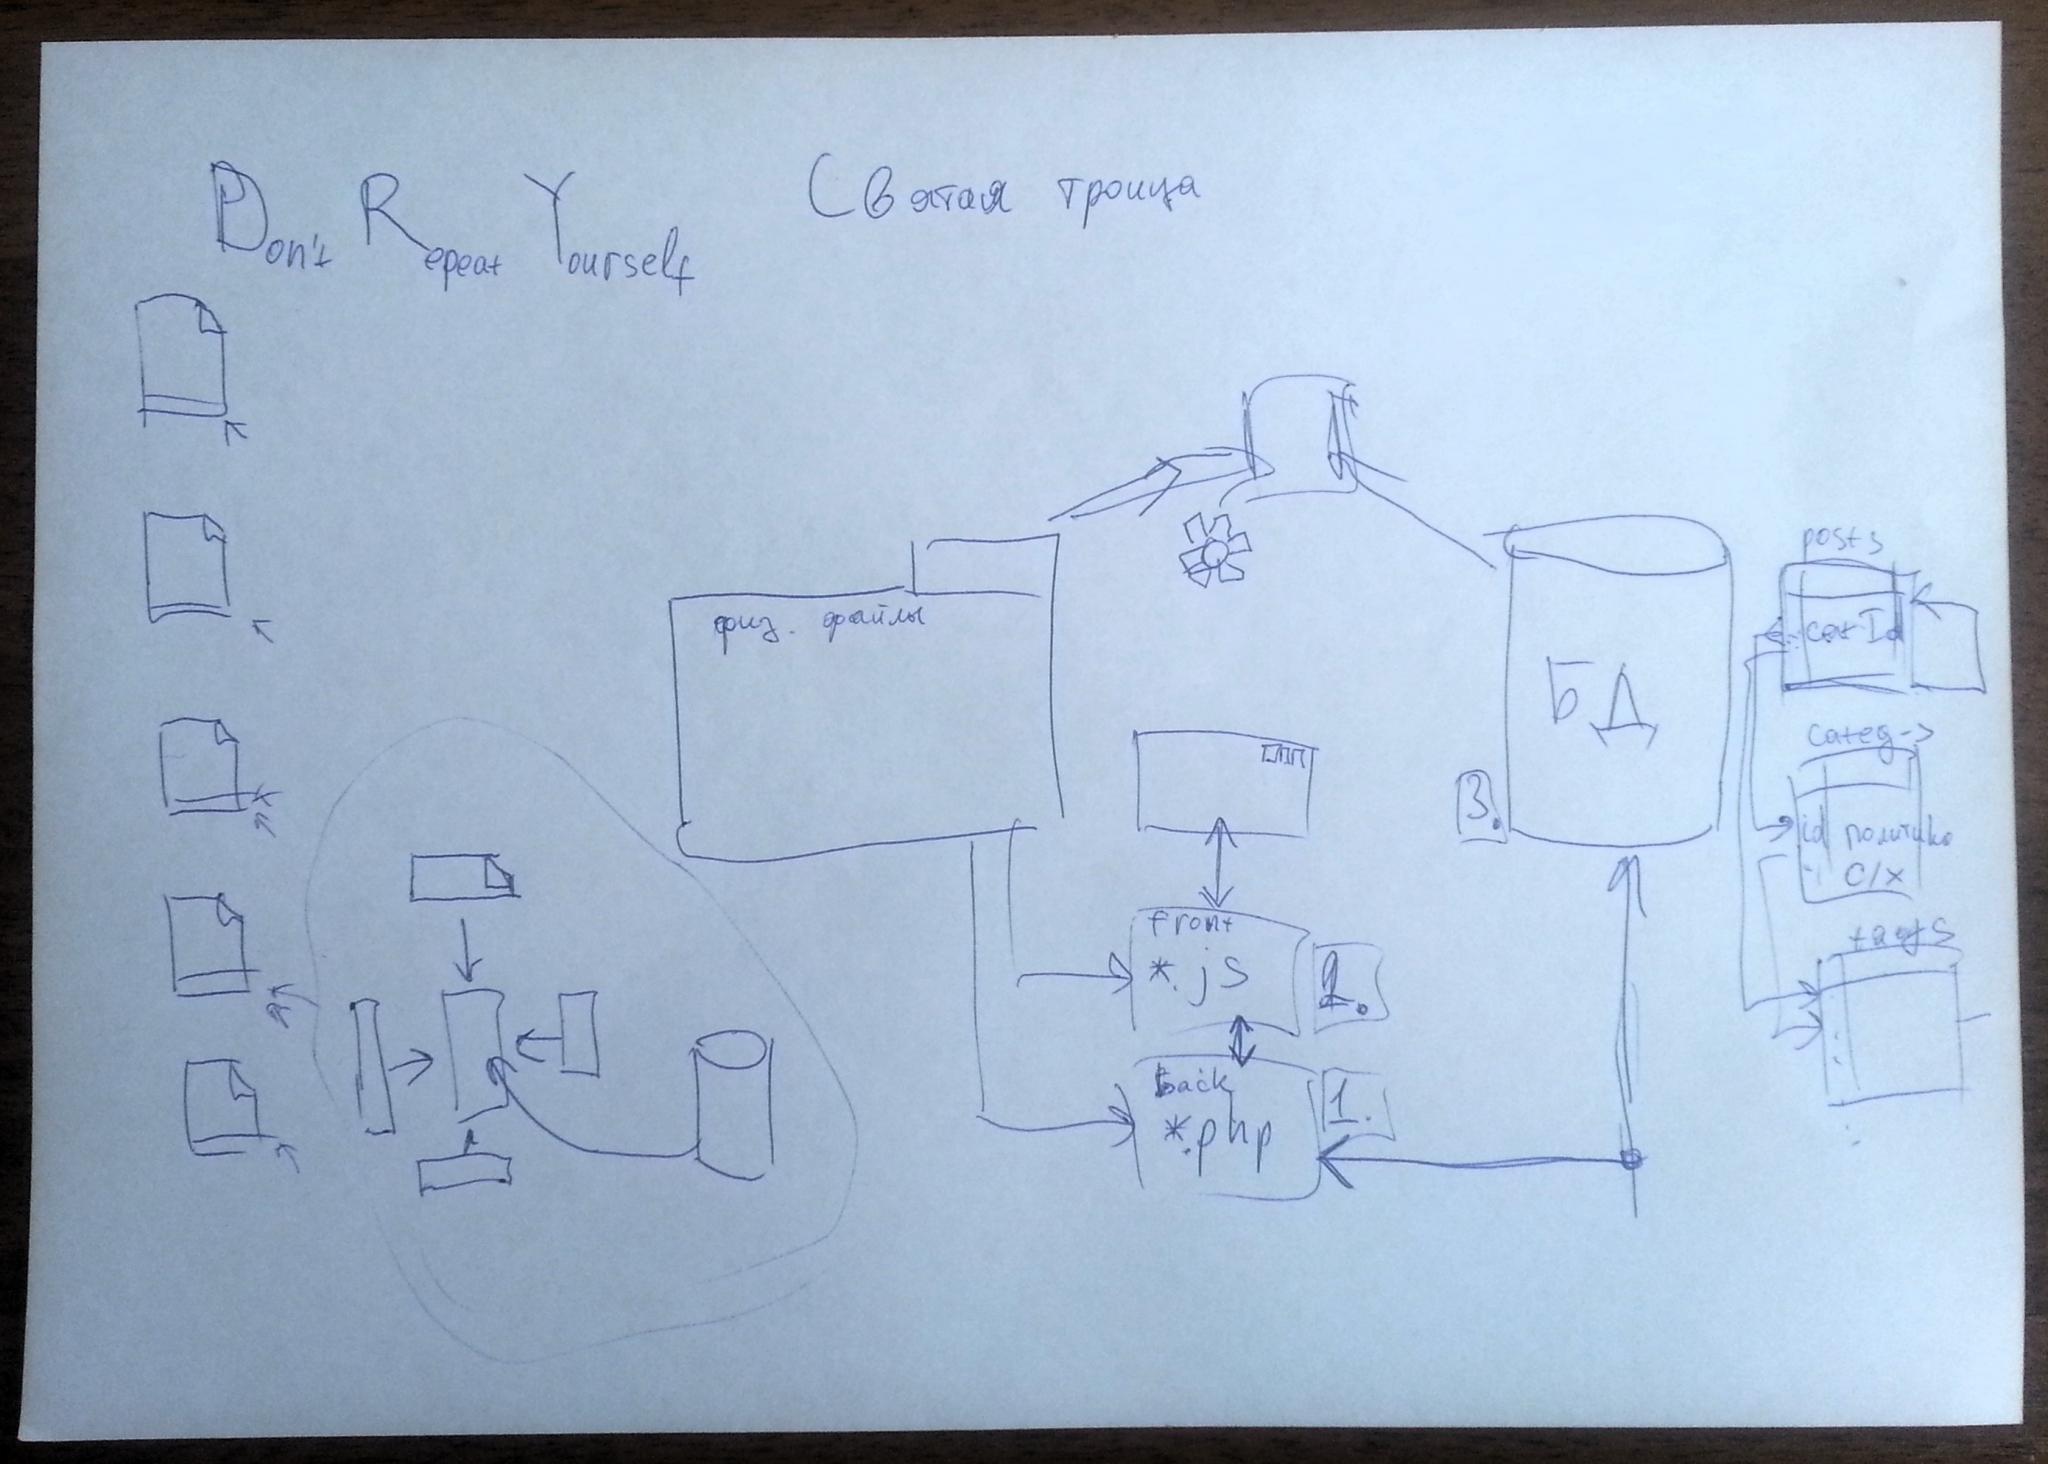 Don't Repeat Yourself
Святая троица
физ. файлы
БД
3.
front
*.js
2.
back
*.php
1.
posts
catId
categ->
id политика
с/х
tags